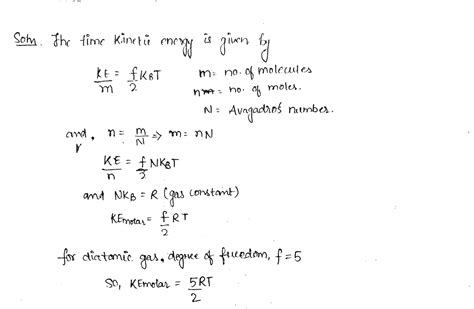 Soln. The time Kinetic energy is given by
KE/m = f/2 KBT m = no. of molecules
n = no. of moles.
N = Avagadro's number.
and, n = m/N => m = nN
KE/n = f/3 NKBT
and NKB = R (gas constant)
KEmolar = f/2 RT
for diatomic gas, degree of freedom, f = 5
So, KEmolar = 5RT/2